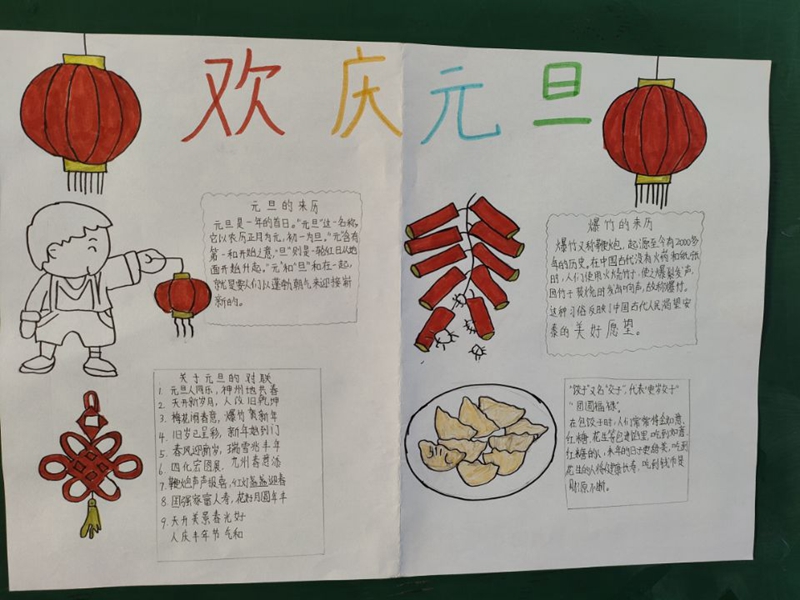 欢庆元旦
元旦的来历
元旦是一年的首日。"元旦"这一名称,
它以农历正月为元,初一为旦。"元"含有
第一和开始之意,"旦"则是一轮红日从地
面升起升起。"元"和"旦"和在一起,
就是要人们以蓬勃朝气来迎接崭
新的。
爆竹的来历
爆竹又称鞭炮,起源至今有2000多
年的历史。在中国古代没有火药和纸张
时,人们使用火烧竹子,使之爆裂发声,
因竹子焚烧时发出响声,故称爆竹。
这种习俗反映了中国古代人民渴望安
泰的美好愿望。
关于元旦的对联
1. 元旦人同乐,神州地长春
2. 天开新岁月,人改旧乾坤
3. 梅花闹春意,爆竹贺新年
4. 旧岁已呈彩,新年起到门
5. 春风迎新岁,瑞雪兆丰年
6. 四化宏图展,九州春意浓
7. 鞭炮声声报喜,红灯盏盏迎春
8. 国强家富人寿,花好月圆年丰
9. 天开美景春光好
人庆丰年节气和
"饺子"又名"交子",代表"更岁交子"
"团圆福禄"。
在包饺子时,人们常常将金如意、
红糖、花生等包进馅里,吃到如意、
红糖的人,来年的日子更甜美,吃到
花生的人将健康长寿,吃到钱币是
财源不断。